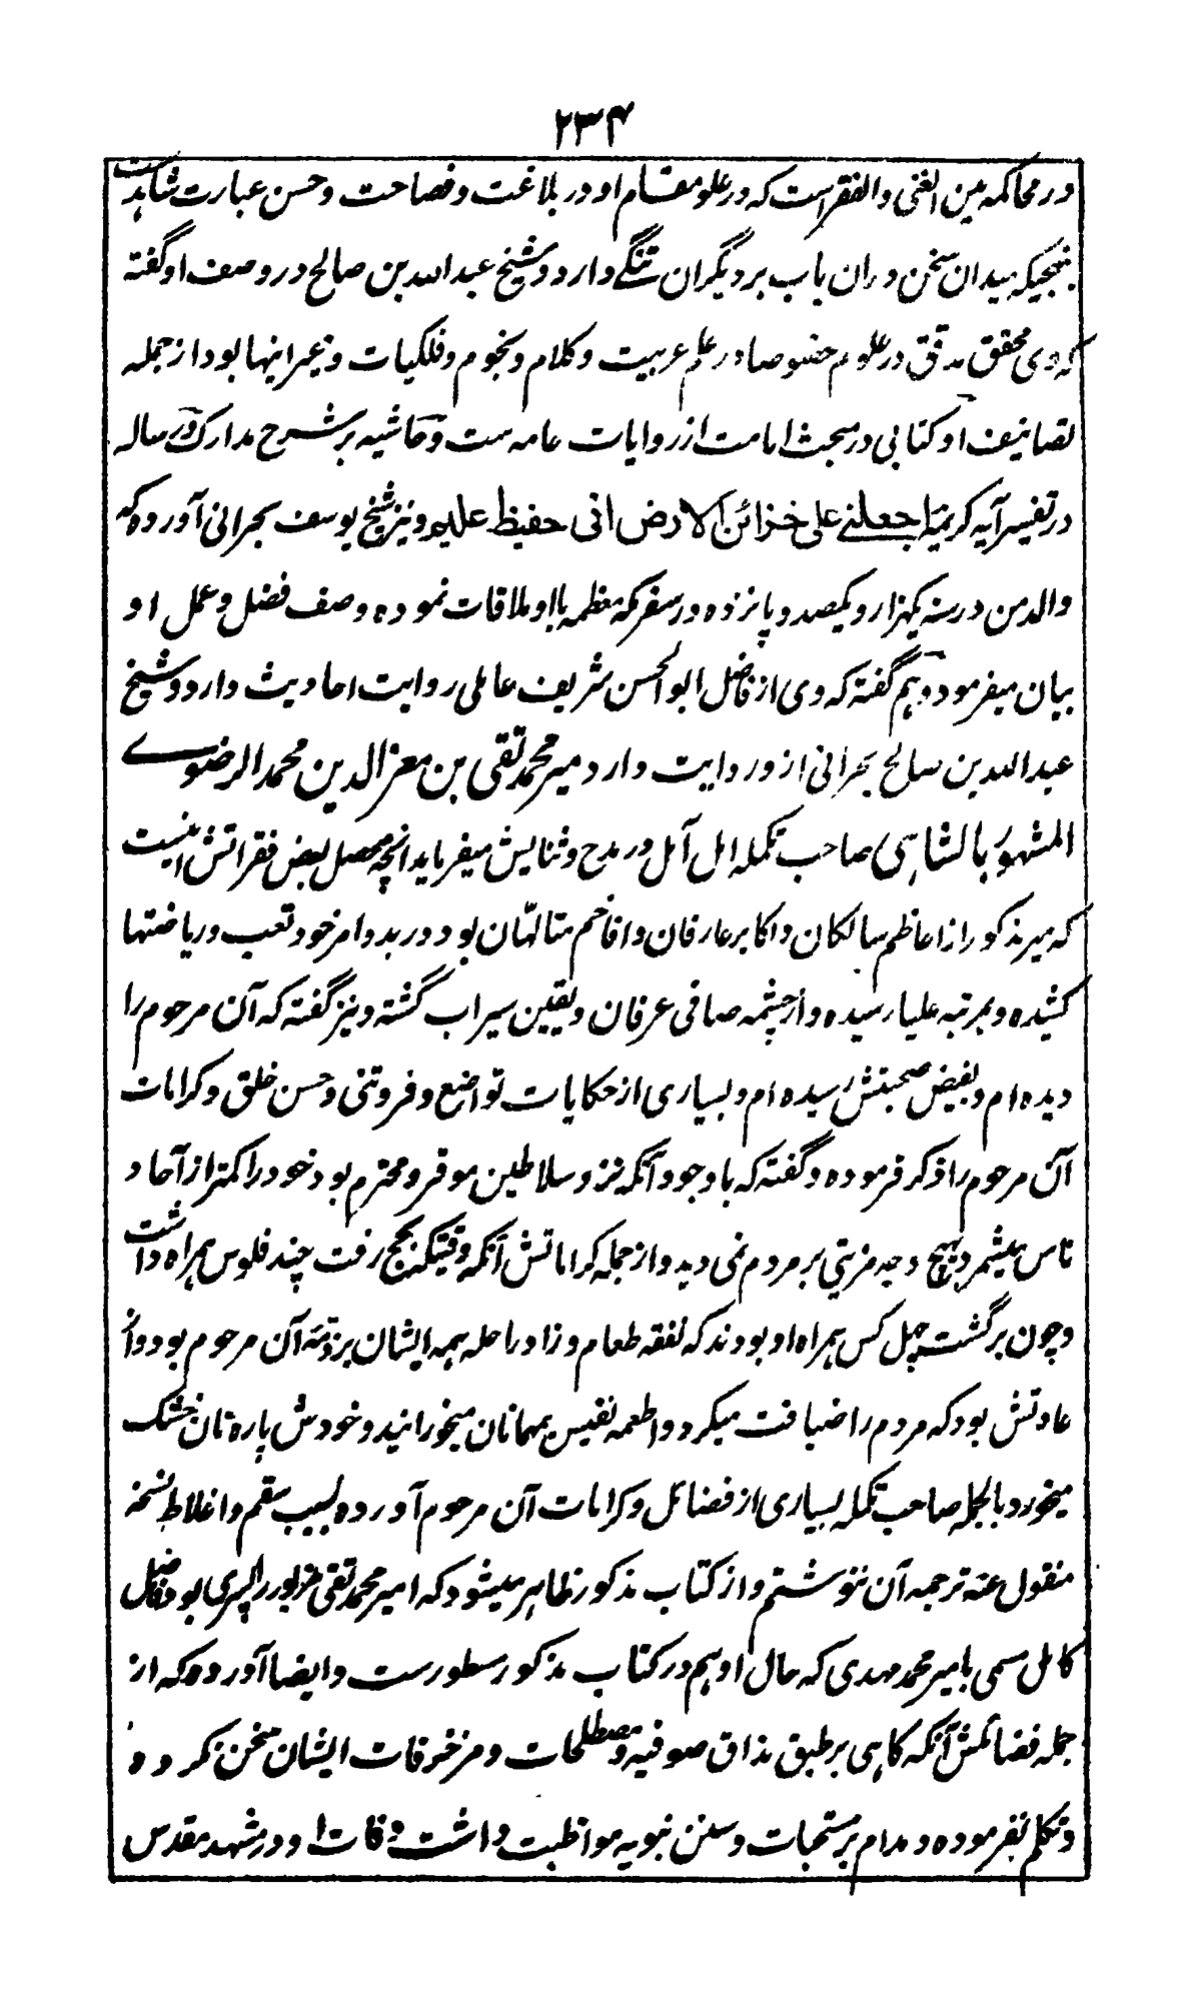 ۲۳۴
در محاکمه بین الغنی والفقر است که در علو مقام او در بلاغت و فصاحت و حسن عبارت شاهدست
بنهجیکه میدان سخن دران باب بر دیگران تنگے دارد و شیخ عبد الله بن صالح در وصف او گفته
که وی محقق مدقق در علوم خصوصا در علم عربیت و کلام و نجوم و فلکیات و غیر اینها بود از جمله
تصانیف او کتابی در مبحث امامت از روایات عامه ست و حاشیه بر شرح مدارک و رساله
در تفسیر آیه کریمه اجعلنے علی خزائن الارض انی حفیظ علیم و نیز شیخ یوسف بحرانی آورده که
والد من در سنه یکهزار و یکصد و پانزده در سفر مکه معظمه با او ملاقات نموده وصف فضل و عمل او
بیان میفرمود و هم گفته که وی از فاضل ابو الحسن شریف عاملی روایت احادیث دارد و شیخ
عبد الله بن صالح بحرانی از و روایت دارد میر محمد تقی بن معز الدین محمد الرضوے
المشهور بالشاهی صاحب تکمله امل آمل در مدح و ثنایش میفرماید انچه محصل بعض فقراتش اینست
که میر مذکور از اعاظم سالکان و اکابر عارفان و افاخم متالهان بود در بدو امر خود تعب و ریاضتها
کشیده و بمرتبه علیا رسیده و از چشمه صافی عرفان و یقین سیراب گشته و نیز گفته که آن مرحوم را
دیده ام و بفیض صحبتش رسیده ام و بسیاری از حکایات تواضع و فروتنی و حسن خلق و کرامات
آن مرحوم را ذکر فرموده و گفته که با وجود آنکه نزد سلاطین موقر و محترم بود خود را کمتر از آحاد
ناس میشمرد و بهیچ وجه مزیتی بر مردم نمی دید و از جمله کراماتش آنکه وقتیکه بحج رفت چند فلوس همراه داشت
و چون برگشت چهل کس همراه او بودند که نفقه طعام و زاد راحله همه ایشان بر ذمه آن مرحوم بود و از
عادتش بود که مردم را ضیافت میکرد و اطعمه نفیس بمهمانان میخورانید و خودش پاره نان خشک
میخورد بالجمله صاحب تکمله بسیاری از فضائل و کرامات آن مرحوم آورده بسبب سقم و اغلاط نسخه
منقول عنه ترجمه آن ننوشتم و از کتاب مذکور ظاهر میشود که امیر محمد تقی مزبور را پسری بود فاضل
کامل مسمی بامیر محمد مهدی که حال او هم در کتاب مذکور مسطورست و ایضا آورده که از
جمله فضائلش آنکه گاهی بر طبق مذاق صوفیه و مصطلحات و مزخرفات ایشان سخن نکرده
و تکلم نفرموده و مدام بر مستحبات و سنن نبویه مواظبت داشت وفات او در مشهد مقدس